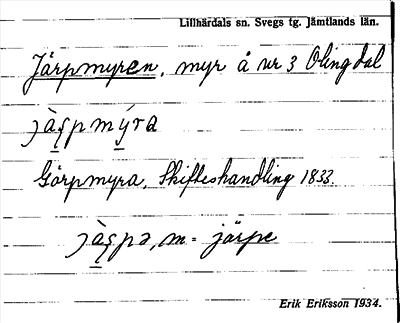 Lillhärdals sn. Svegs tg. Jämtlands län.
Järpmyren, myr å nr 3 Olingdal
Görpmyra, Skifteshandling 1833.
m = järpe
Erik Eriksson 1934.